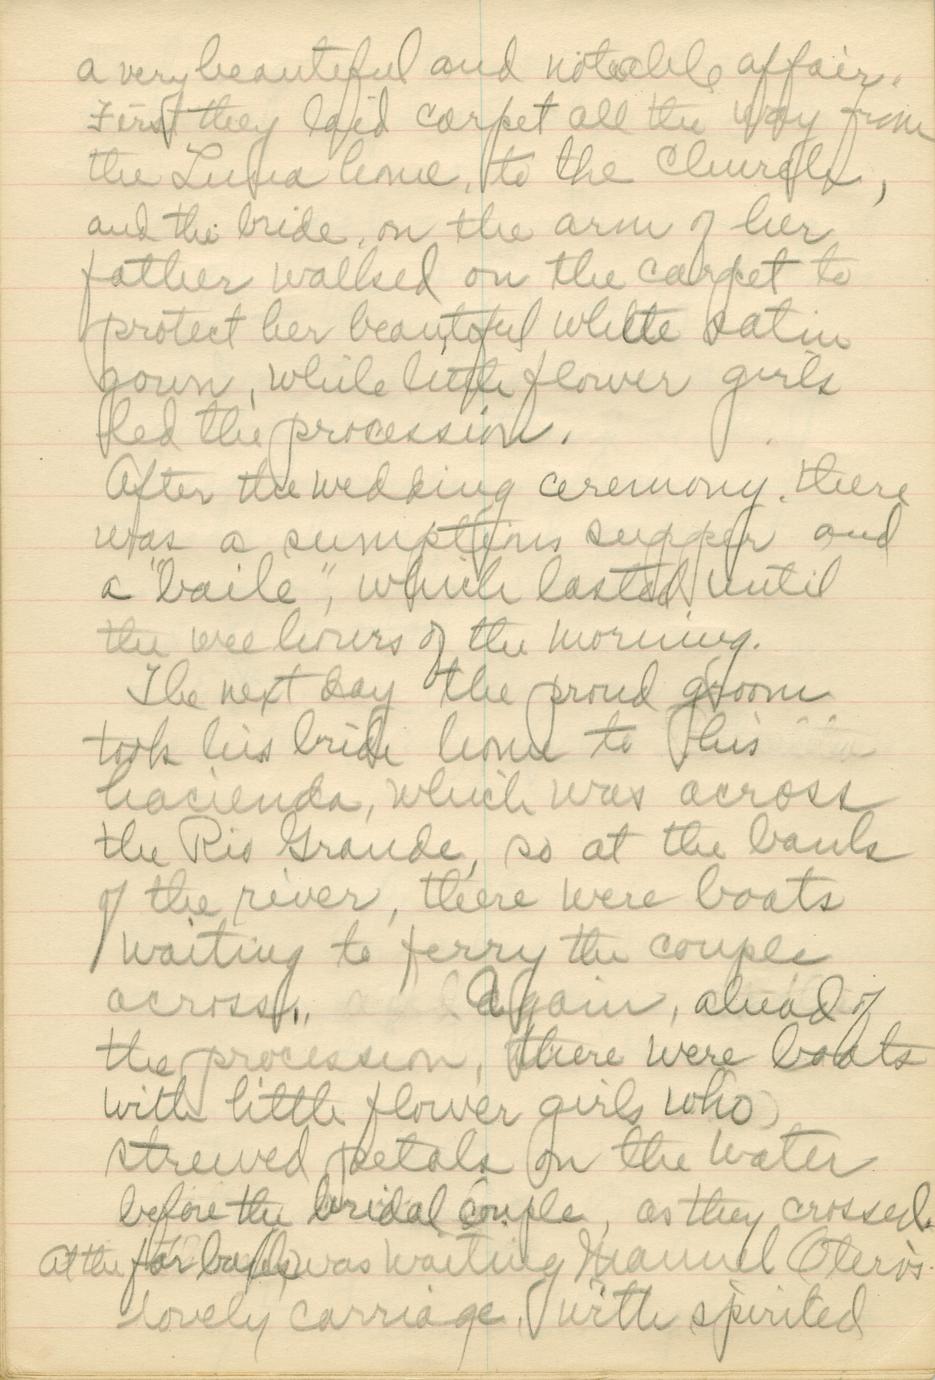 a very beautiful and notable affair.
First they laid carpet all the way from
the Luna home, to the Church,
and the bride, on the arm of her
father walked on the carpet to
protect her beautiful white satin
gown, while little flower girls
led the procession.
After the wedding ceremony, there
was a sumptious supper and
a "baile", which lasted until
the wee hours of the morning.
The next day the proud groom
took his bride home to his
hacienda, which was across
the Rio Grande, so at the banks
of the river, there were boats
waiting to ferry the couple
across. Again, ahead of
the procession, there were boats
with little flower girls who
strewed petals on the water
before the bridal couple, as they crossed.
At the far bank was waiting Manuel Otero's
lovely carriage, with spirited